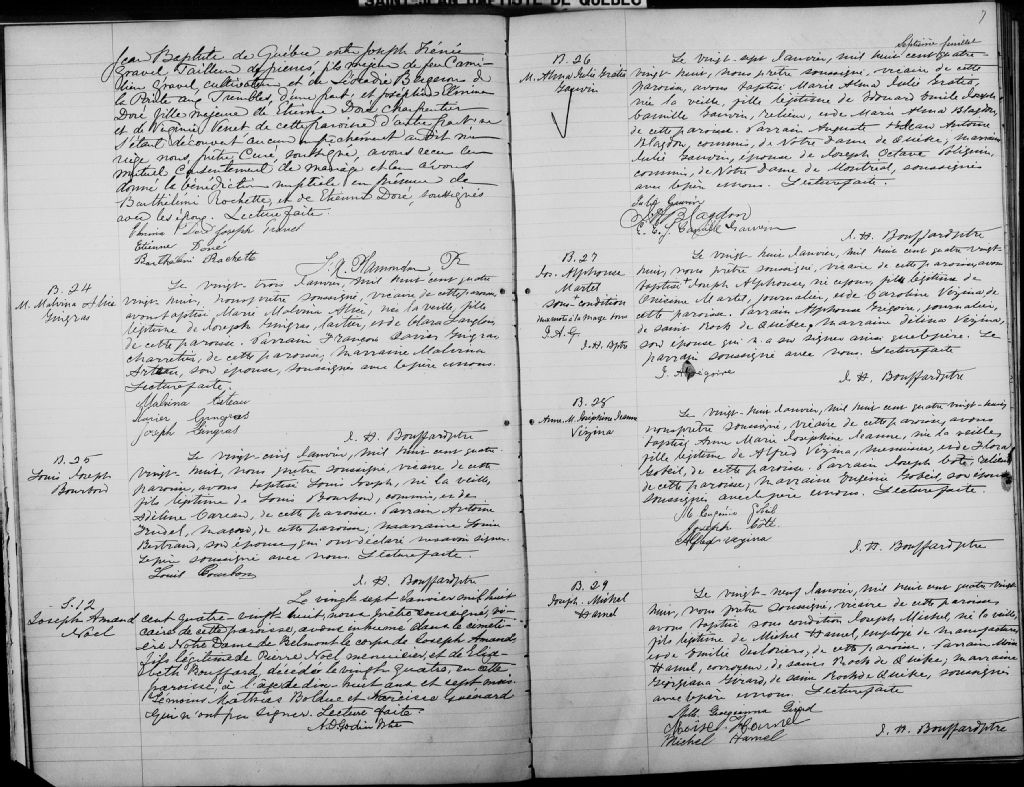 SAINT-JEAN BAPTISTE DE QUÉBEC
Jean Baptiste de Québec entre Joseph Irénée
Gravel, Tailleur de pierres, fils majeur de feu
Gravel, cultivateur et de Léocadie Bergeron de
la Pointe aux Trembles, d'une part, et Joséphine Elmina
Doré fille majeure de Etienne Doré charpentier
et de Virginie Venet de cette paroisse d'autre part ne
s'étant découvert aucun empêchement au dit
nous, prêtre, Curé, soussigné, avons reçu leur
mutuel consentement de mariage et leur avons
donné la bénédiction nuptiale en présence de
Barthélémi Rochette, et de Etienne Doré, soussignés
avec les époux. Lecture faite.
Elmina Doré Joseph Gravel
Etienne Doré
Barthélémi Rochette
F. R. Plamondon, Ptre
B. 24
M. Malvina Alice
Gingras
Le vingt-trois Janvier, mil huit cent quatre
vingt-huit, nous prêtre soussigné, vicaire de cette paroisse,
avons baptisé Marie Malvina Alice, née la veille, fille
légitime de Joseph Gingras, sautier, et de Clara Langlois,
de cette paroisse. Parrain François Xavier Gingras,
charretier, de cette paroisse, marraine Malvina
son épouse, soussignés avec le père et nous.
Lecture faite.
Malvina Esteau
Xavier Gingras
Joseph Gingras
J. H. Bouffard ptre
B. 25
Louis Joseph
Bourbon
Le vingt-cinq Janvier, mil huit cent quatre
vingt-huit, nous prêtre soussigné, vicaire de cette
paroisse, avons baptisé Louis Joseph, né la veille,
fils légitime de Louis Bourbon, commis, et de
Adéline Careau, de cette paroisse. Parrain Antoine
Trudel, maçon, de cette paroisse; marraine Louise
Bertrand, son épouse, qui ont déclaré ne savoir signer.
Le père soussigné avec nous. Lecture faite.
Louis Bourbon
J. H. Bouffard ptre
S. 12
Joseph Amand
Noël
Le vingt sept Janvier mil huit
cent quatre-vingt huit, nous prêtre soussigné, vi-
caire de cette paroisse, avons inhumé dans le cimeti-
ère Notre Dame de Belmont le corps de Joseph Amand,
fils légitime de Pierre Noël menuisier, et de Eliza-
beth Bouffard, décédé le vingt quatre, en cette
paroisse, à l'âge de dix-huit ans et sept mois.
Témoins Mathias Bolduc et Narcisse Guénard
qui n'ont pu signer. Lecture faite.
N. J. Godin Ptre
7
Septième feuillet
B. 26
M. Alma Julie Gratia
Gauvin
Le vingt-sept Janvier, mil huit cent quatre-
vingt-huit, nous prêtre soussigné, vicaire de cette
paroisse, avons baptisé Marie Alma Julie Gratia,
née la veille, fille légitime de Edouard Emile Joseph
Camille Gauvin, relieur, et de Marie Alma Blagdon,
de cette paroisse. Parrain Auguste William Antoine
Blagdon, commis, de Notre Dame de Québec; marraine
Julie Gauvin, épouse de Joseph Octave Poliquin,
commis, de Notre Dame de Montréal, soussignés
avec le père et nous. Lecture faite.
Julie Gauvin
Blagdon
E. E. J. Camille Gauvin
J. H. Bouffard ptre
B. 27
Jos. Alphonse
Martel
sous + condition
J. A. G
J. H. Bptre
Le vingt-huit Janvier, mil huit cent quatre vingt-
huit, nous prêtre soussigné, vicaire de cette paroisse, avons
baptisé + Joseph Alphonse, né ce jour, fils légitime de
Onésime Martel, journalier, et de Caroline Vézina de
cette paroisse. Parrain Alphonse Grégoire, journalier,
de Saint Roch de Québec; marraine Délina Vézina,
son épouse qui n'a su signer ainsi que le père. Le
parrain soussigné avec nous. Lecture faite
J. A Grégoire
J. H. Bouffard ptre
B. 28
Anne M. Joséphine Jeanne
Vézina
Le vingt-huit Janvier, mil huit cent quatre vingt-huit,
nous prêtre soussigné, vicaire de cette paroisse, avons
baptisé Anne Marie Joséphine Jeanne, née la veille,
fille légitime de Alfred Vézina, menuisier, et de Flora
Gobeil, de cette paroisse. Parrain Joseph Côté,
de cette paroisse; marraine Eugénie Gobeil, son épouse,
soussignés avec le père et nous. Lecture faite.
M Eugénie Gobeil
Joseph Côté
Alfred Vézina
J. H. Bouffard ptre
B. 29
Joseph Michel
Hamel
Le vingt-neuf Janvier, mil huit cent quatre vingt-
huit, nous prêtre soussigné, vicaire de cette paroisse,
avons baptisé sous condition Joseph Michel, né la veille,
fils légitime de Michel Hamel, employé de manufacture,
et de Emilie Desloriers, de cette paroisse. Parrain Moïse
Hamel, corroyeur, de Saint Roch de Québec; marraine
Georgiana Girard, de Saint Roch de Québec, soussignés
avec le père et nous. Lecture faite
Mlle. Georgianna Girard
Moise Hamel
Michel Hamel
J. H. Bouffard ptre